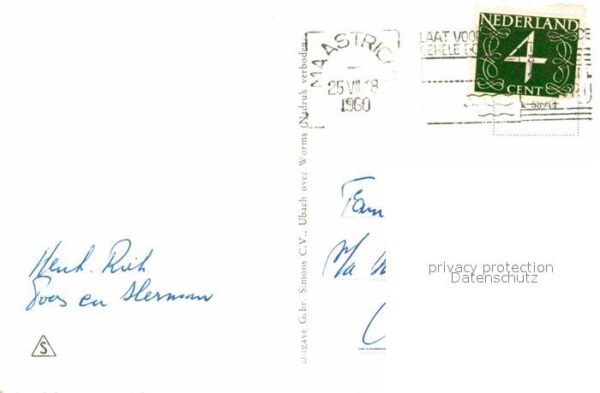 MAASTRICH
25 VII 18
1960
LAAT VOOR
GEHELE
NEDERLAND
4
CENT
Uitgave Gebr. Simons C.V., Ubach over Worms (Nadruk verboden
Fam
p/a
privacy protection
Datenschutz
Henk. Rich
Toos en Herman
S